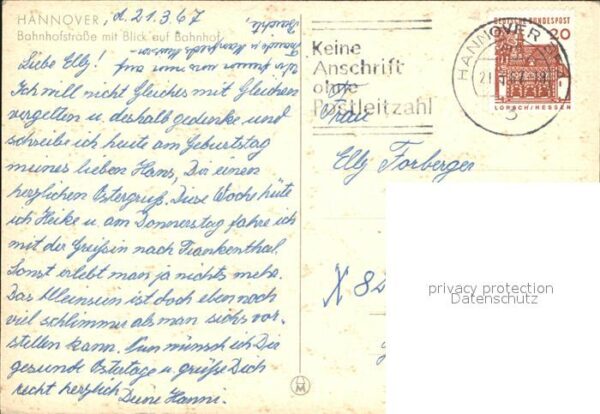 HANNOVER, d. 21.3.67
Bahnhofstraße mit Blick auf Bahnhof
Liebe Elly!
Ich will nicht Gleiches mit Gleichen
vergelten u. deshalb gedenke und
schreibe ich heute am Geburtstag
meines lieben Hans, Dir einen
herzlichen Ostergruß. Diese Woche hüte
ich Heike u. am Donnerstag fahre ich
mit der Greißin nach Frankenthal.
Sonst erlebt man ja nichts mehr.
Das Alleinsein ist doch eben noch
viel schlimmer als man sichs vor-
stellen kann. Nun wünsch ich Dir
gesunde Ostertage u. grüße Dich
recht herzlich Deine Hanni.
Keine
Anschrift
ohne
Postleitzahl
HANNOVER
3
DEUTSCHE BUNDESPOST
20
LORSCH/HESSEN
Frau
Elly Forberger
X 82
privacy protection
Datenschutz